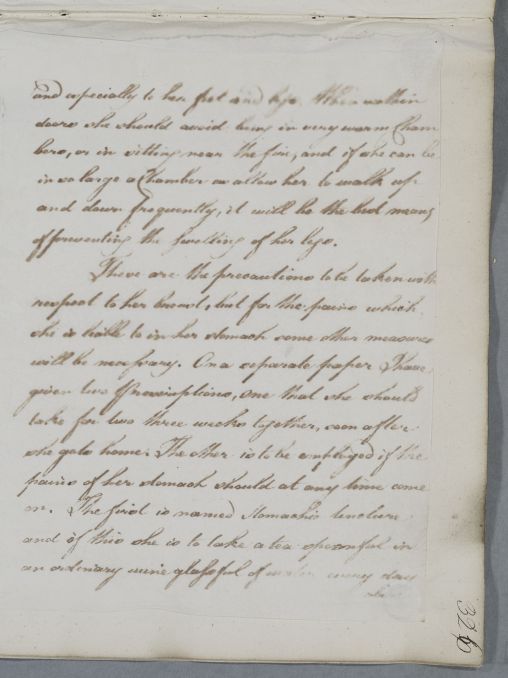 and especially to her feet and legs. When within
doors she should avoid being in very warm Cham
bers, or in sitting near the fire, and if she can be
in so large a Chamber as allow her to walk up
and down frequently, it will be the best means
of preventing the swelling of her legs.
These are the precautions to be taken with
respect to her breast, but for the pains which
she is liable to in her stomach some other measures
will be necessary. On a separate paper I have
given two Prescriptions, one that she should
take for two three weeks together, soon after
she gets home. The other is to be employed if the
pains of her stomach should at any time come
on. The first is named Stomachic tincture
and of this she is to take a tea spoonful in
an ordinary wine glassful of water every day
326